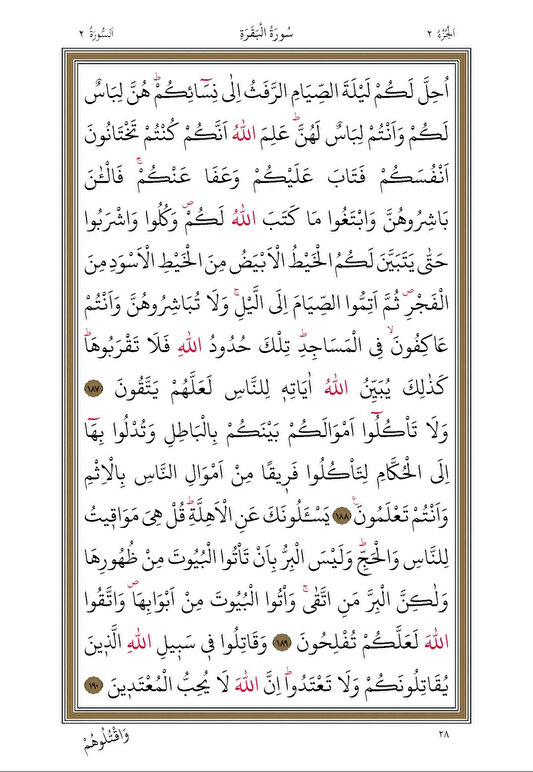 اَلْجُزْءُ ٢ سُورَةُ الْبَقَرَةِ اَلسُّورَةُ ٢
اُحِلَّ لَكُمْ لَيْلَةَ الصِّيَامِ الرَّفَثُ اِلٰى نِسَٓائِكُمْۜ هُنَّ لِبَاسٌ
لَكُمْ وَاَنْتُمْ لِبَاسٌ لَهُنَّۜ عَلِمَ اللّٰهُ اَنَّكُمْ كُنْتُمْ تَخْتَانُونَ
اَنْفُسَكُمْ فَتَابَ عَلَيْكُمْ وَعَفَا عَنْكُمْۚ فَالْـٰٔنَ
بَاشِرُوهُنَّ وَابْتَغُوا مَا كَتَبَ اللّٰهُ لَكُمْۖ وَكُلُوا وَاشْرَبُوا
حَتّٰى يَتَبَيَّنَ لَكُمُ الْخَيْطُ الْاَبْيَضُ مِنَ الْخَيْطِ الْاَسْوَدِ مِنَ
الْفَجْرِۖ ثُمَّ اَتِمُّوا الصِّيَامَ اِلَى الَّيْلِۚ وَلَا تُبَاشِرُوهُنَّ وَاَنْتُمْ
عَاكِفُونَۙ فِى الْمَسَاجِدِۜ تِلْكَ حُدُودُ اللّٰهِ فَلَا تَقْرَبُوهَاۜ
كَذٰلِكَ يُبَيِّنُ اللّٰهُ اٰيَاتِه۪ لِلنَّاسِ لَعَلَّهُمْ يَتَّقُونَ ﴿١٨٧﴾
وَلَا تَأْكُلُٓوا اَمْوَالَكُمْ بَيْنَكُمْ بِالْبَاطِلِ وَتُدْلُوا بِهَٓا
اِلَى الْحُكَّامِ لِتَأْكُلُوا فَر۪يقًا مِنْ اَمْوَالِ النَّاسِ بِالْاِثْمِ
وَاَنْتُمْ تَعْلَمُونَ۟ ﴿١٨٨﴾ يَسْـَٔلُونَكَ عَنِ الْاَهِلَّةِۜ قُلْ هِىَ مَوَاق۪يتُ
لِلنَّاسِ وَالْحَجِّۜ وَلَيْسَ الْبِرُّ بِاَنْ تَأْتُوا الْبُيُوتَ مِنْ ظُهُورِهَا
وَلٰكِنَّ الْبِرَّ مَنِ اتَّقٰىۚ وَأْتُوا الْبُيُوتَ مِنْ اَبْوَابِهَاۖ وَاتَّقُوا
اللّٰهَ لَعَلَّكُمْ تُفْلِحُونَ ﴿١٨٩﴾ وَقَاتِلُوا ف۪ى سَب۪يلِ اللّٰهِ الَّذ۪ينَ
يُقَاتِلُونَكُمْ وَلَا تَعْتَدُواۜ اِنَّ اللّٰهَ لَا يُحِبُّ الْمُعْتَد۪ينَ ﴿١٩٠﴾
٢٨ وَاقْتُلُوهُمْ